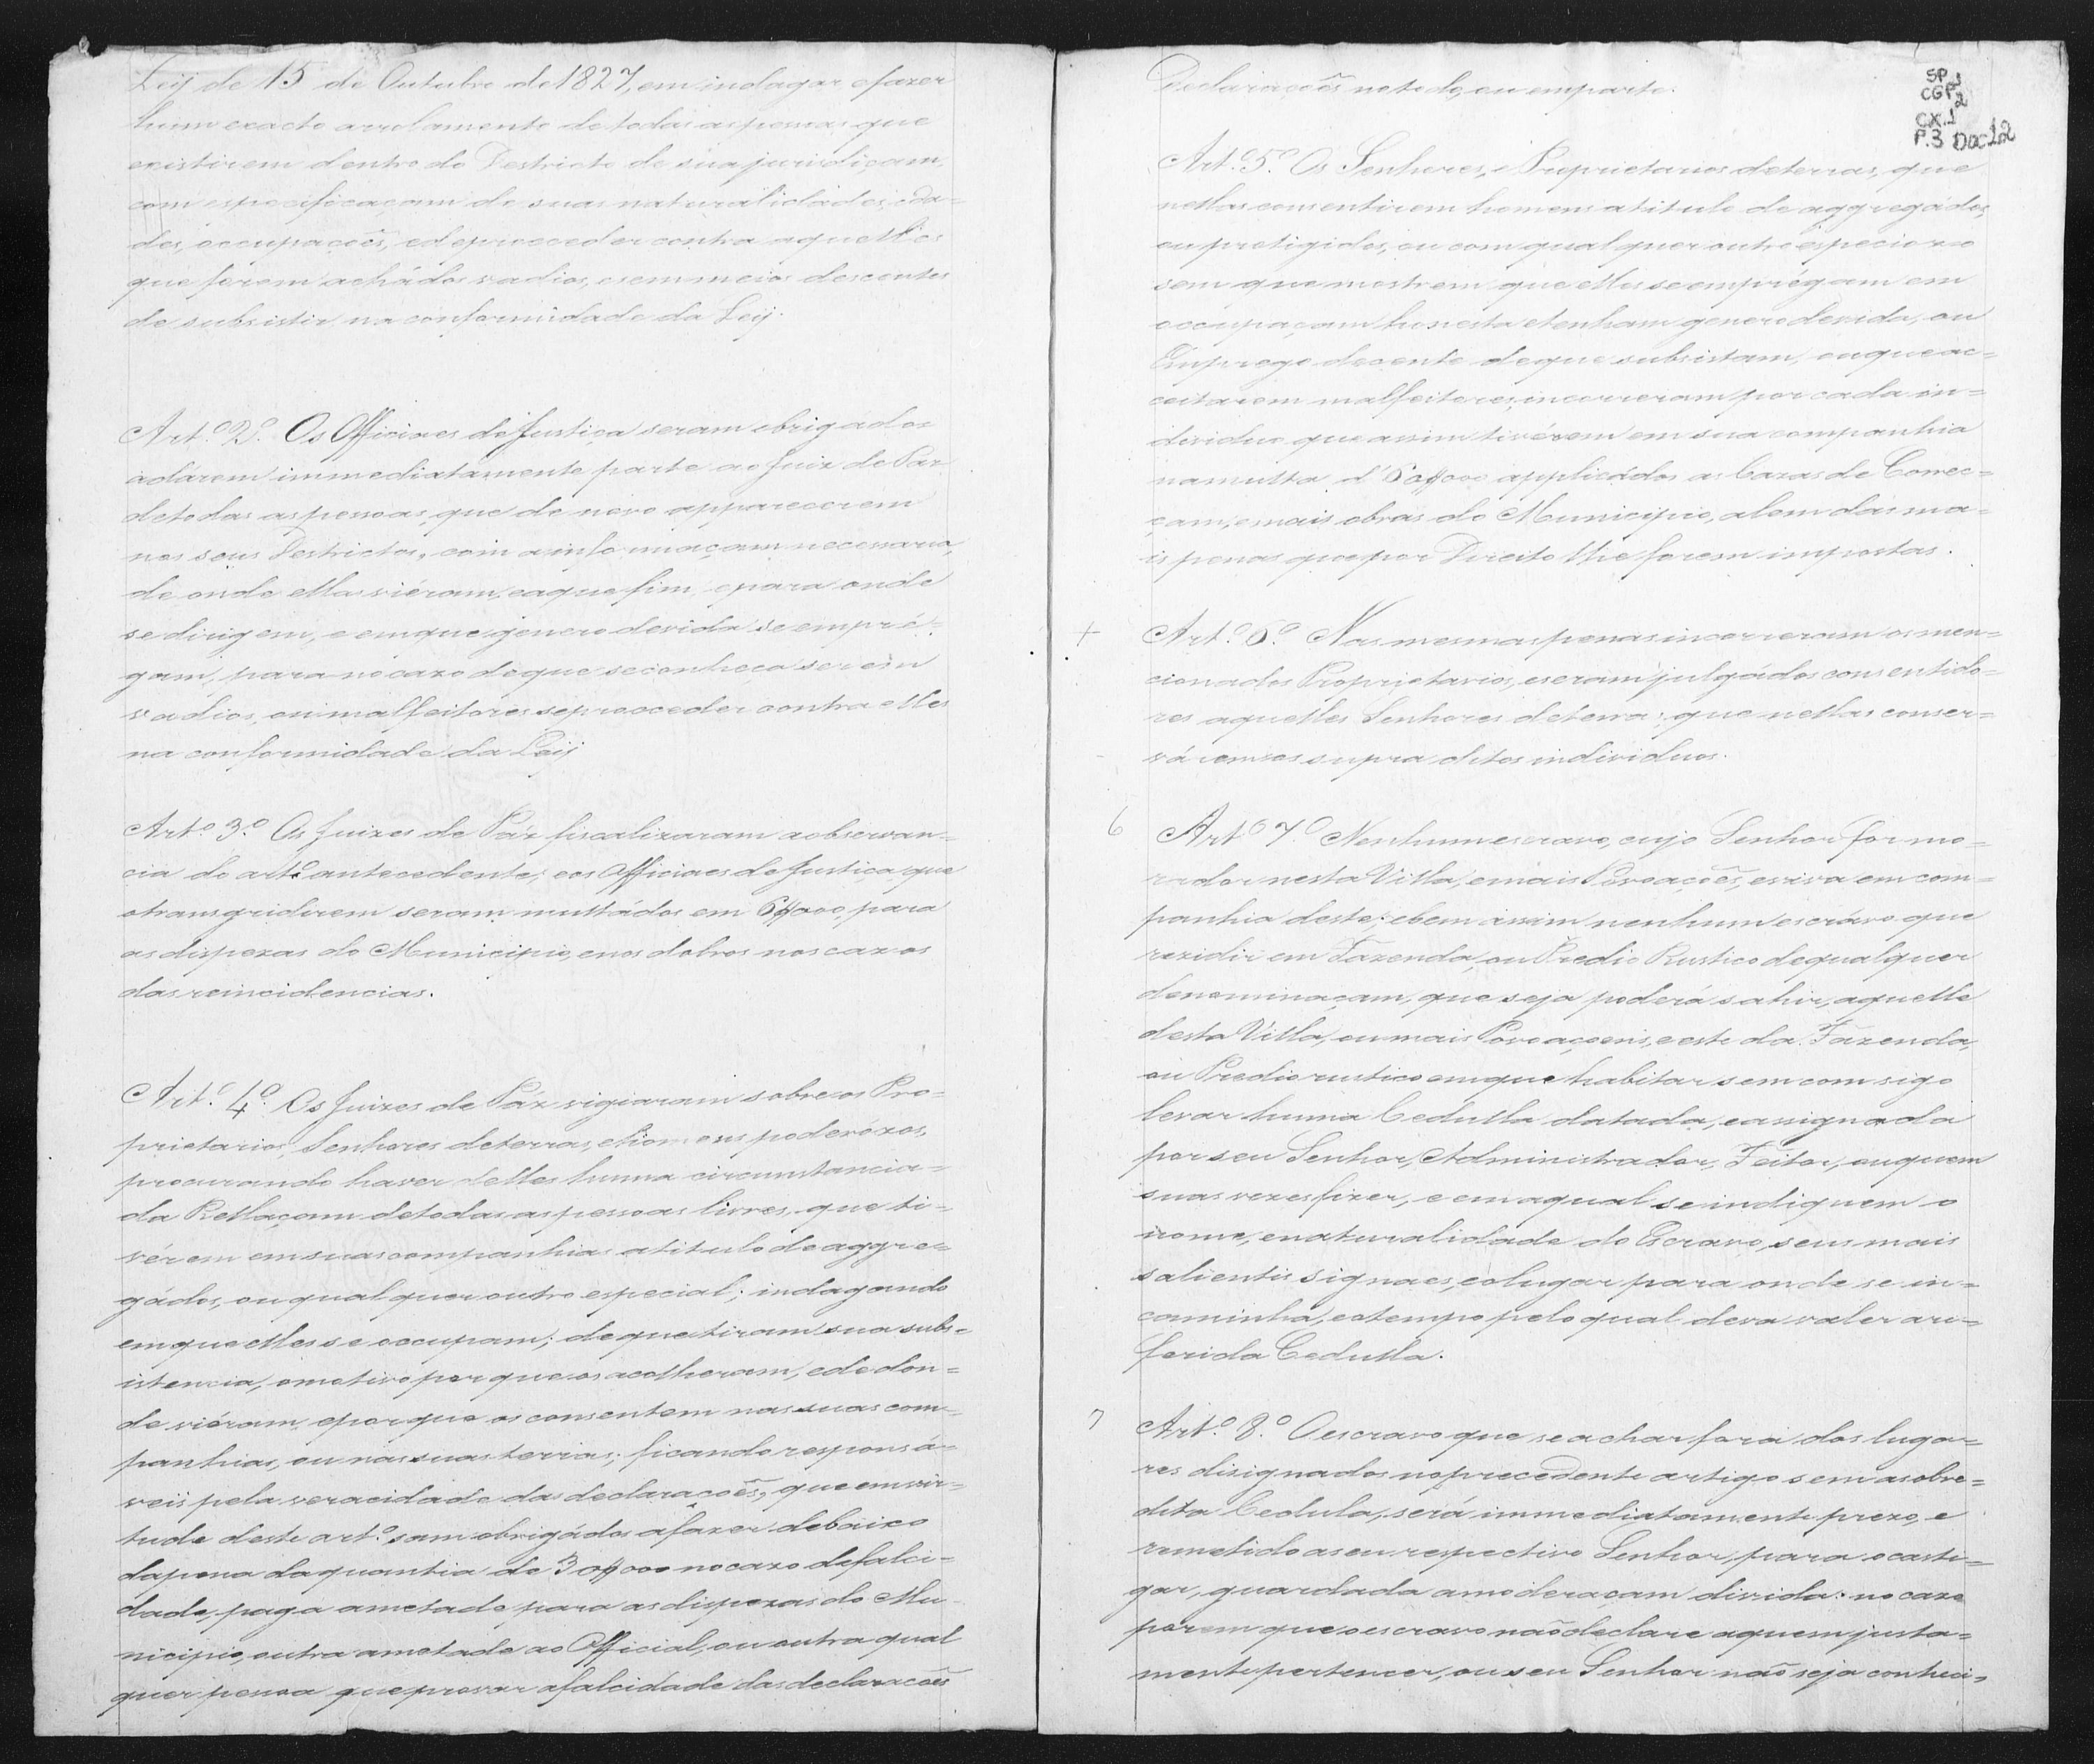 Leij de 15 de Outubro de 1827, em indagar e fazer
hum exacto arrolamento de todas as pessoas, que
existirem dentro do Destricto de sua jurisdiçam,
com especificaçam de suas naturalidades, ida=
des, occupaçoẽs, e de proceder contra aquelles
que forem achádos vadios, e sem meios descentes
de subsistir na conformidade da Leij.
Art.º 2.º Os Officiaes de Justiça seram obrigádos
a dárem immediatamente parte ao Juiz de Paz
de todas as pessoas, que de novo apparecerem
nos seus Destrictos, com a informaçam necessaria,
de onde ellas viéram, e a que fim, e para onde
se dirigem, e em que genero de vida se empré=
gam, para no cazo de que se conheça serem
vadios, ou malfeitores se proceder contra elles
na conformidade da Leij
Art.º 3.º Os Juizes de Páz fiscalizaram a observan=
cia do art.º antecedente, e os Officiaes de Justiça que
o transgridirem seram multádos em 6$000 para
as dispezas do Municipio, e nos dobros nos cazos
das reincidencias.
Art.º 4.º Os Juizes de Páz vigiaram sobre os Pro=
prietarios, Senhores de terras, e homens poderózos,
procurando haver delles huma circumstancia=
da Rellaçam de todas as pessoas livres, que ti=
vérem em suas companhias a titulo de aggre=
gádos, ou qual quer outro especial; indagando
em que elles se occupam; de que tiram sua subs=
istencia, o motivo por que os acolheram, e de don=
de viéram, e por que os consentem nas suas com=
panhias, ou nas suas terras; ficando responsá=
veis pela veracidade das declaracoẽs, que em vir=
tude deste art.º sam obrigádos a fazer debaixo
da pena da quantia de 30$000 no cazo de falci=
dade, paga ametade para as dispezas do Mu=
nicipio, outra ametade ao Official, ou outra qual
quer pessoa que provar a falcidade das declaracoẽs
Declaracoẽs no todo, ou em parte.
SP 1
CGP 2
CX.1
P.3 Doc 12
Art.º 5.º Os Senhores, e Proprietarios de terras, que
nellas consentirem homens a titulo de aggregádos,
ou protigidos, ou com qual quer outro especiozo
sem que mostrem que elles se emprégam em
occupaçam honesta e tenham genero de vida, ou
Emprego decente de que subsistam, ou que ac=
ceitarem malfeitores, incorreram por cada in=
dividuo que assim tivérem em sua companhia
na multa d' 60$000 applicádos as Cazas de Correc=
çam, e mais obras do Municipio, alem das ma=
is penas que por Direito lhe forem impostas.
+ Art.º 6.º Nas mesmas penas incorreram os men=
cionados Proprietarios, e seram julgádos consentido=
res aquelles Senhores de terras que nellas conser=
várem os supra ditos individuos.
6 Art.º 7.º Nenhum escravo, cujo Senhor for mo=
rador nesta Villa, e mais Povoaçoẽs, e viva em com=
panhia deste; e bem assim nenhum escrávo que
rezidir em Fazenda, ou Predio Rustico de qualquer
denominaçam, que seja poderá sahir, aquelle
desta Villa, ou mais Povoaçoens, e este da Fazenda,
ou Predio rustico em que habitar sem com sigo
levar huma Cedulla datada, e assignada
por seu Senhor, Administrador, Feitor, ou quem
suas vezes fizer, e em a qual se indiquem o
nome, e naturalidade do Escravo, seus mais
salientis signaes, e o lugar para onde se in=
caminha, e o tempo pelo qual deva valer a re=
ferida Cedulla.
7 Art.º 8.º O escravo que se achar fora dos luga=
res disignados no precedente artigo sem a sobre=
dita Cedula, será immediatamente prezo, e
remetido a seu respectivo Senhor, para o casti=
gar, guardada a moderaçam divida: no cazo
porem que o escravo naõ declare a quem justa=
mente pertencer, ou seu Senhor naõ seja conheci=